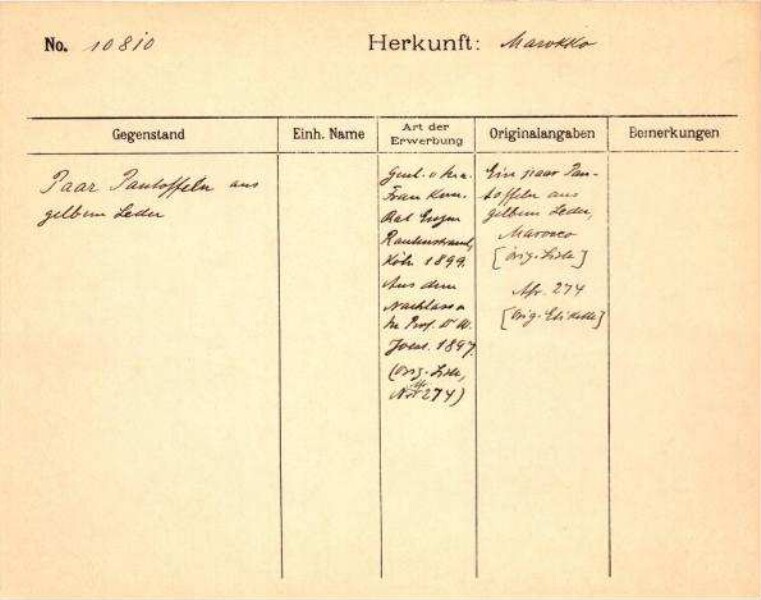 No. 10810
Herkunft: Marokko
Gegenstand
Einh. Name
Art der
Erwerbung
Originalangaben
Bemerkungen
Paar Pantoffeln aus
gelbem Leder
Frau Kom.
Rat Eugen
Rautenstrauch,
Köln 1899.
Aus dem
Nachlass
Prof. Dr. W.
Joest. 1897.
(Orig. Liste,
Afr. 274)
Ein paar Pan-
toffeln aus
gelbem Leder,
Marocco
[Orig. Liste]
Afr. 274
[Orig. Etikette]